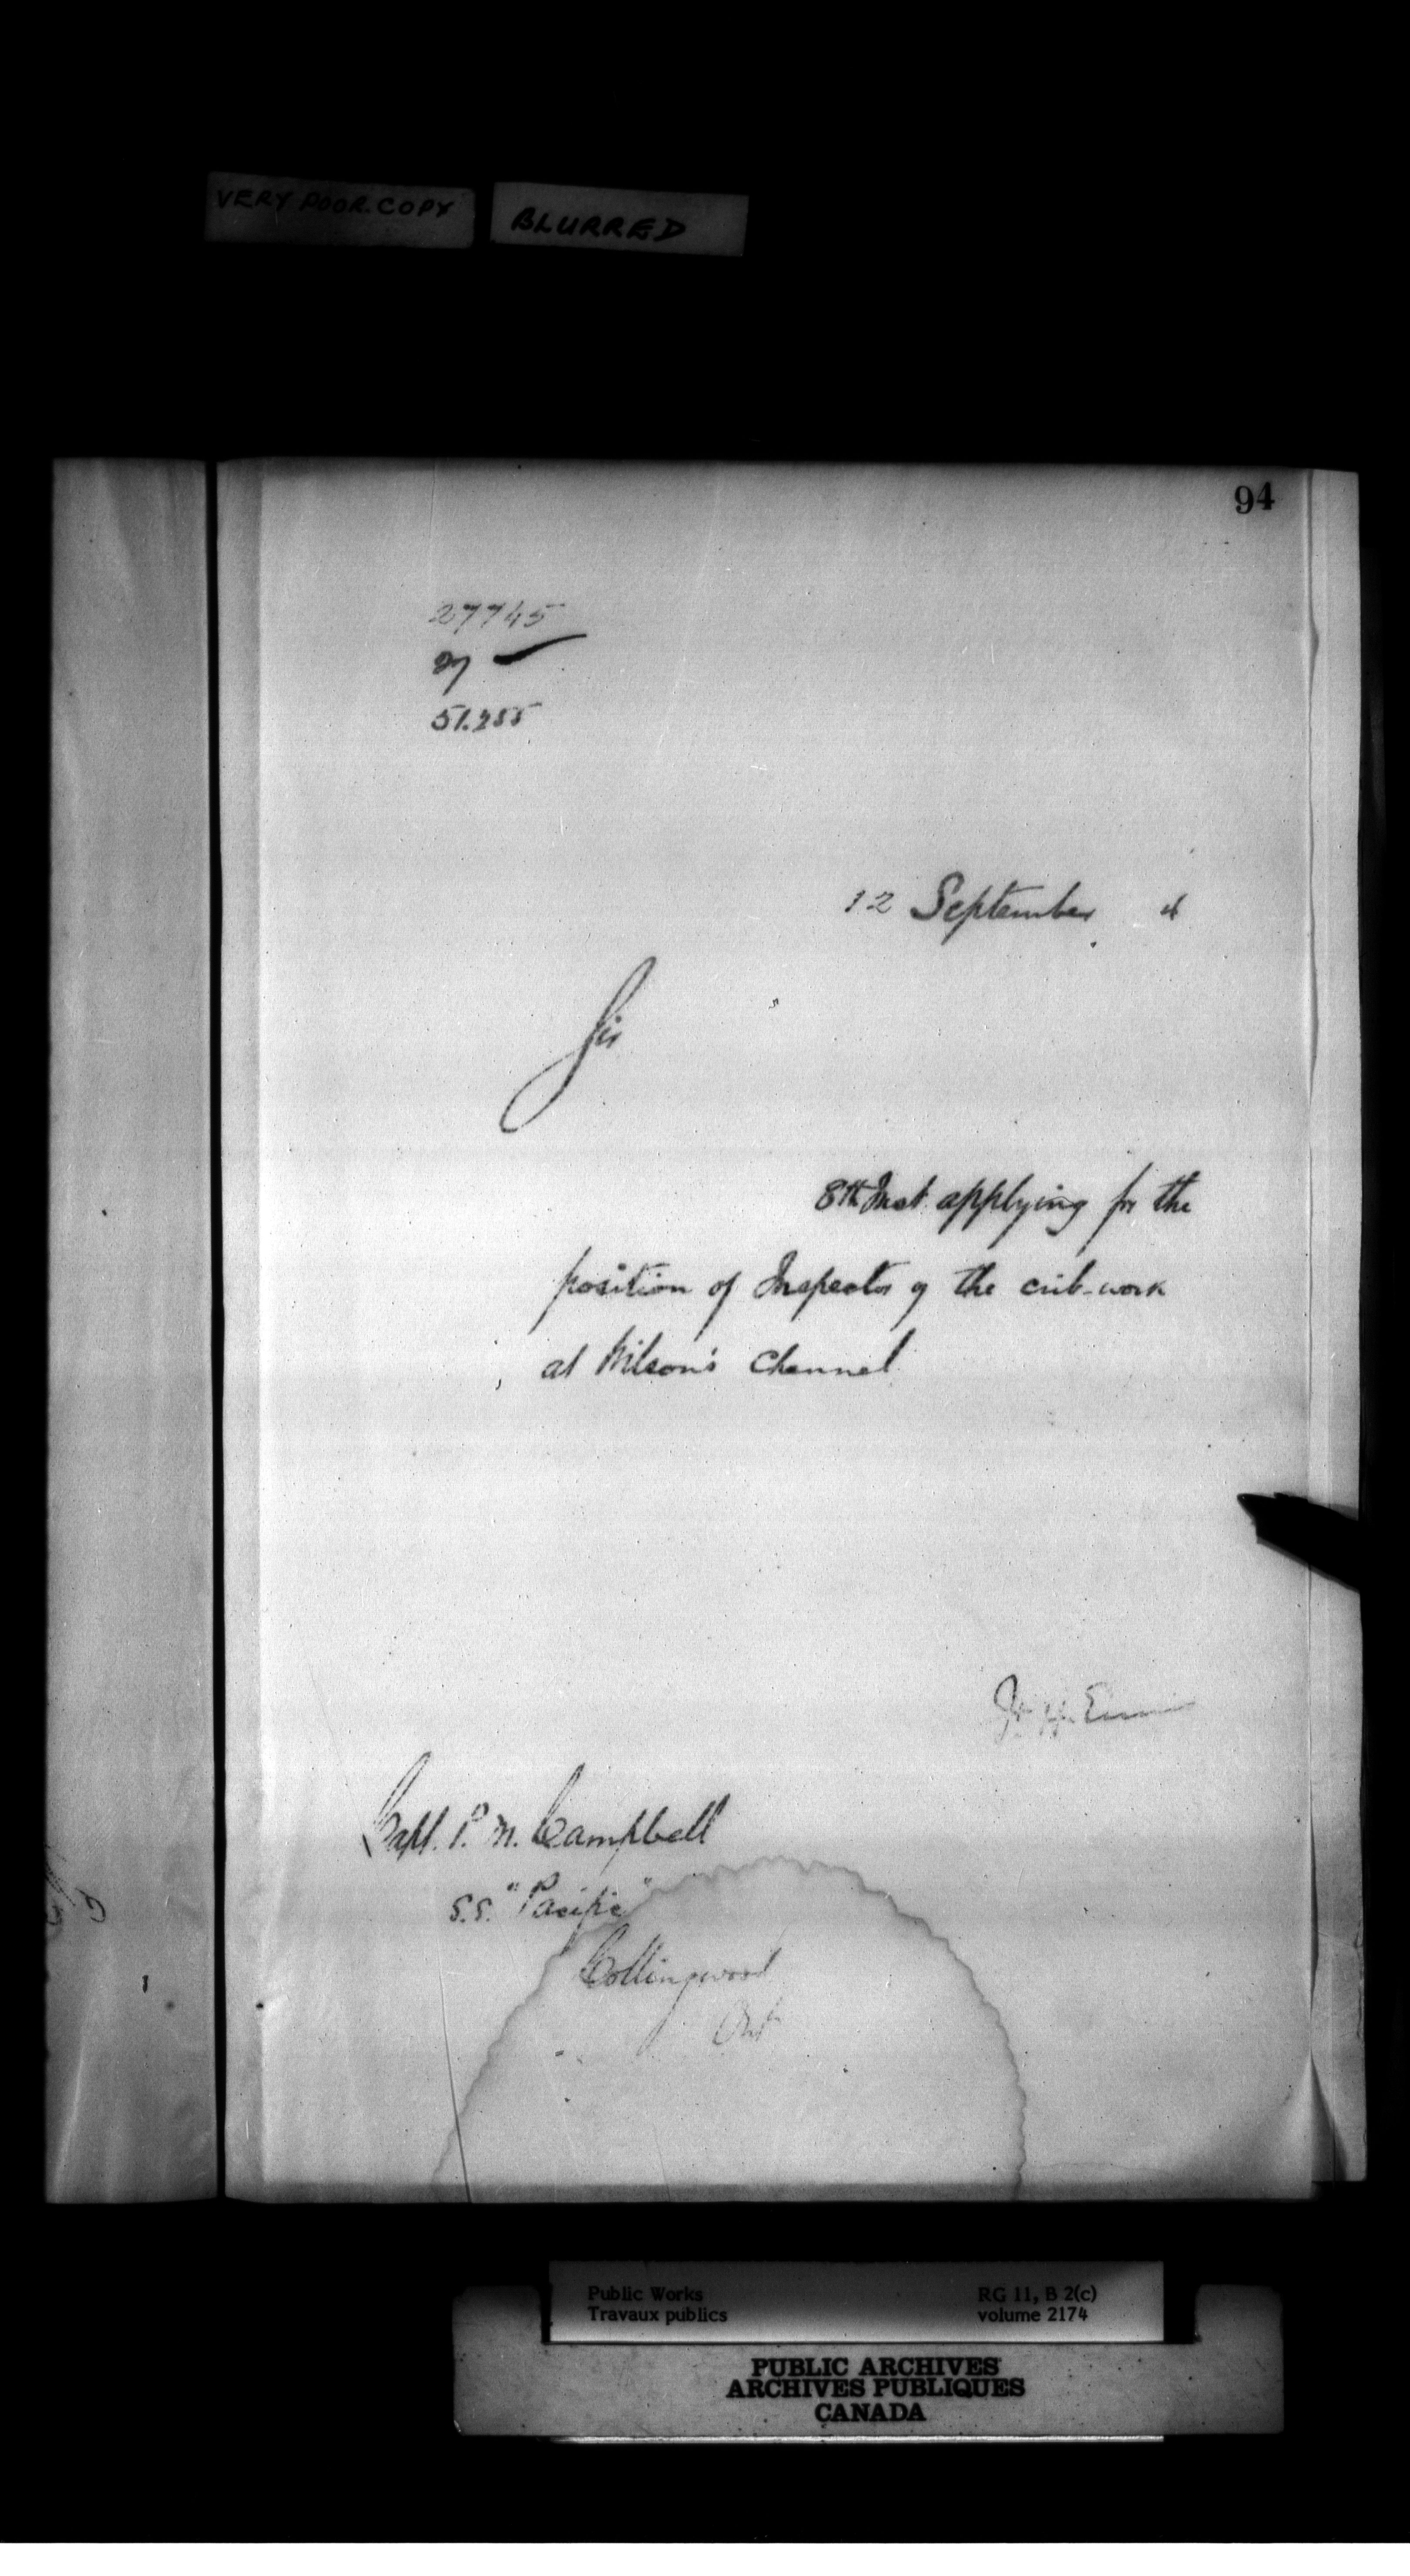 VERY POOR COPY
BLURRED
94
27745
51.255
12 September 4
Sir
8th Inst. applying for the
position of Inspector of the crib-work
at Wilson's Channel
Capt. P. M. Campbell
S.S. "Pacific"
Collingwood
Ont
Public Works
Travaux publics
RG 11, B 2(c)
volume 2174
PUBLIC ARCHIVES
ARCHIVES PUBLIQUES
CANADA